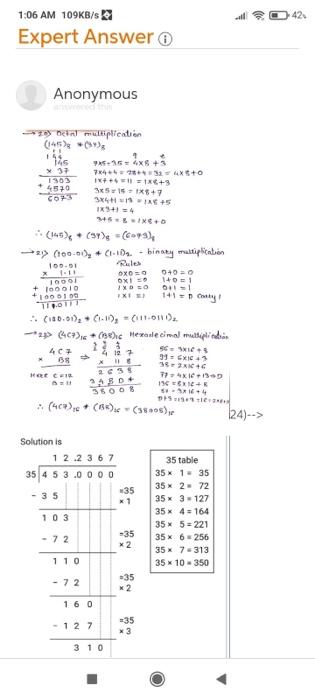 1:06 AM 109KB/s
42%
Expert Answer
Anonymous
answered this
→20) Octal multiplication
(145)₈ * (37)₈
145
x 37
1303
+ 4570
6073
7x5=35 = 4x8+3
7x4+4 = 28+4=32 = 4x8+0
1x7+4=11 = 1x8+3
3x5=15 = 1x8+7
3x4+1=13 = 1x8+5
1x3+1=4
3+5=8=1x8+0
∴ (145)₈ * (37)₈ = (6073)₈
→21) (100.01)₂ * (1.11)₂ - binary multiplication
100.01
x 1.11
10001
+ 100010
+1000100
111.0111
Rules
0x0=0
0x1=0
1x0=0
1x1=1
0+0=0
1+0=1
0+1=1
1+1=0 carry 1
∴ (100.01)₂ * (1.11)₂ = (111.0111)₂
→22) (4C7)₁₆ * (B8)₁₆ Hexadecimal multiplication
4C7
x B8
Here C=12
B=11
⇒
4 12 7
x 11 8
2638
348D*
38008
∴ (4C7)₁₆ * (B8)₁₆ = (38008)₁₆
24)-->
Solution is
1 2 . 2 3 6 7
35 4 5 3 . 0 0 0 0
- 3 5
=35
x 1
1 0 3
- 7 2
=35
x 2
1 1 0
- 7 2
=35
x 2
1 6 0
- 1 2 7
=35
x 3
3 1 0
35 table
35 x 1 = 35
35 x 2 = 72
35 x 3 = 127
35 x 4 = 164
35 x 5 = 221
35 x 6 = 256
35 x 7 = 313
35 x 10 = 350